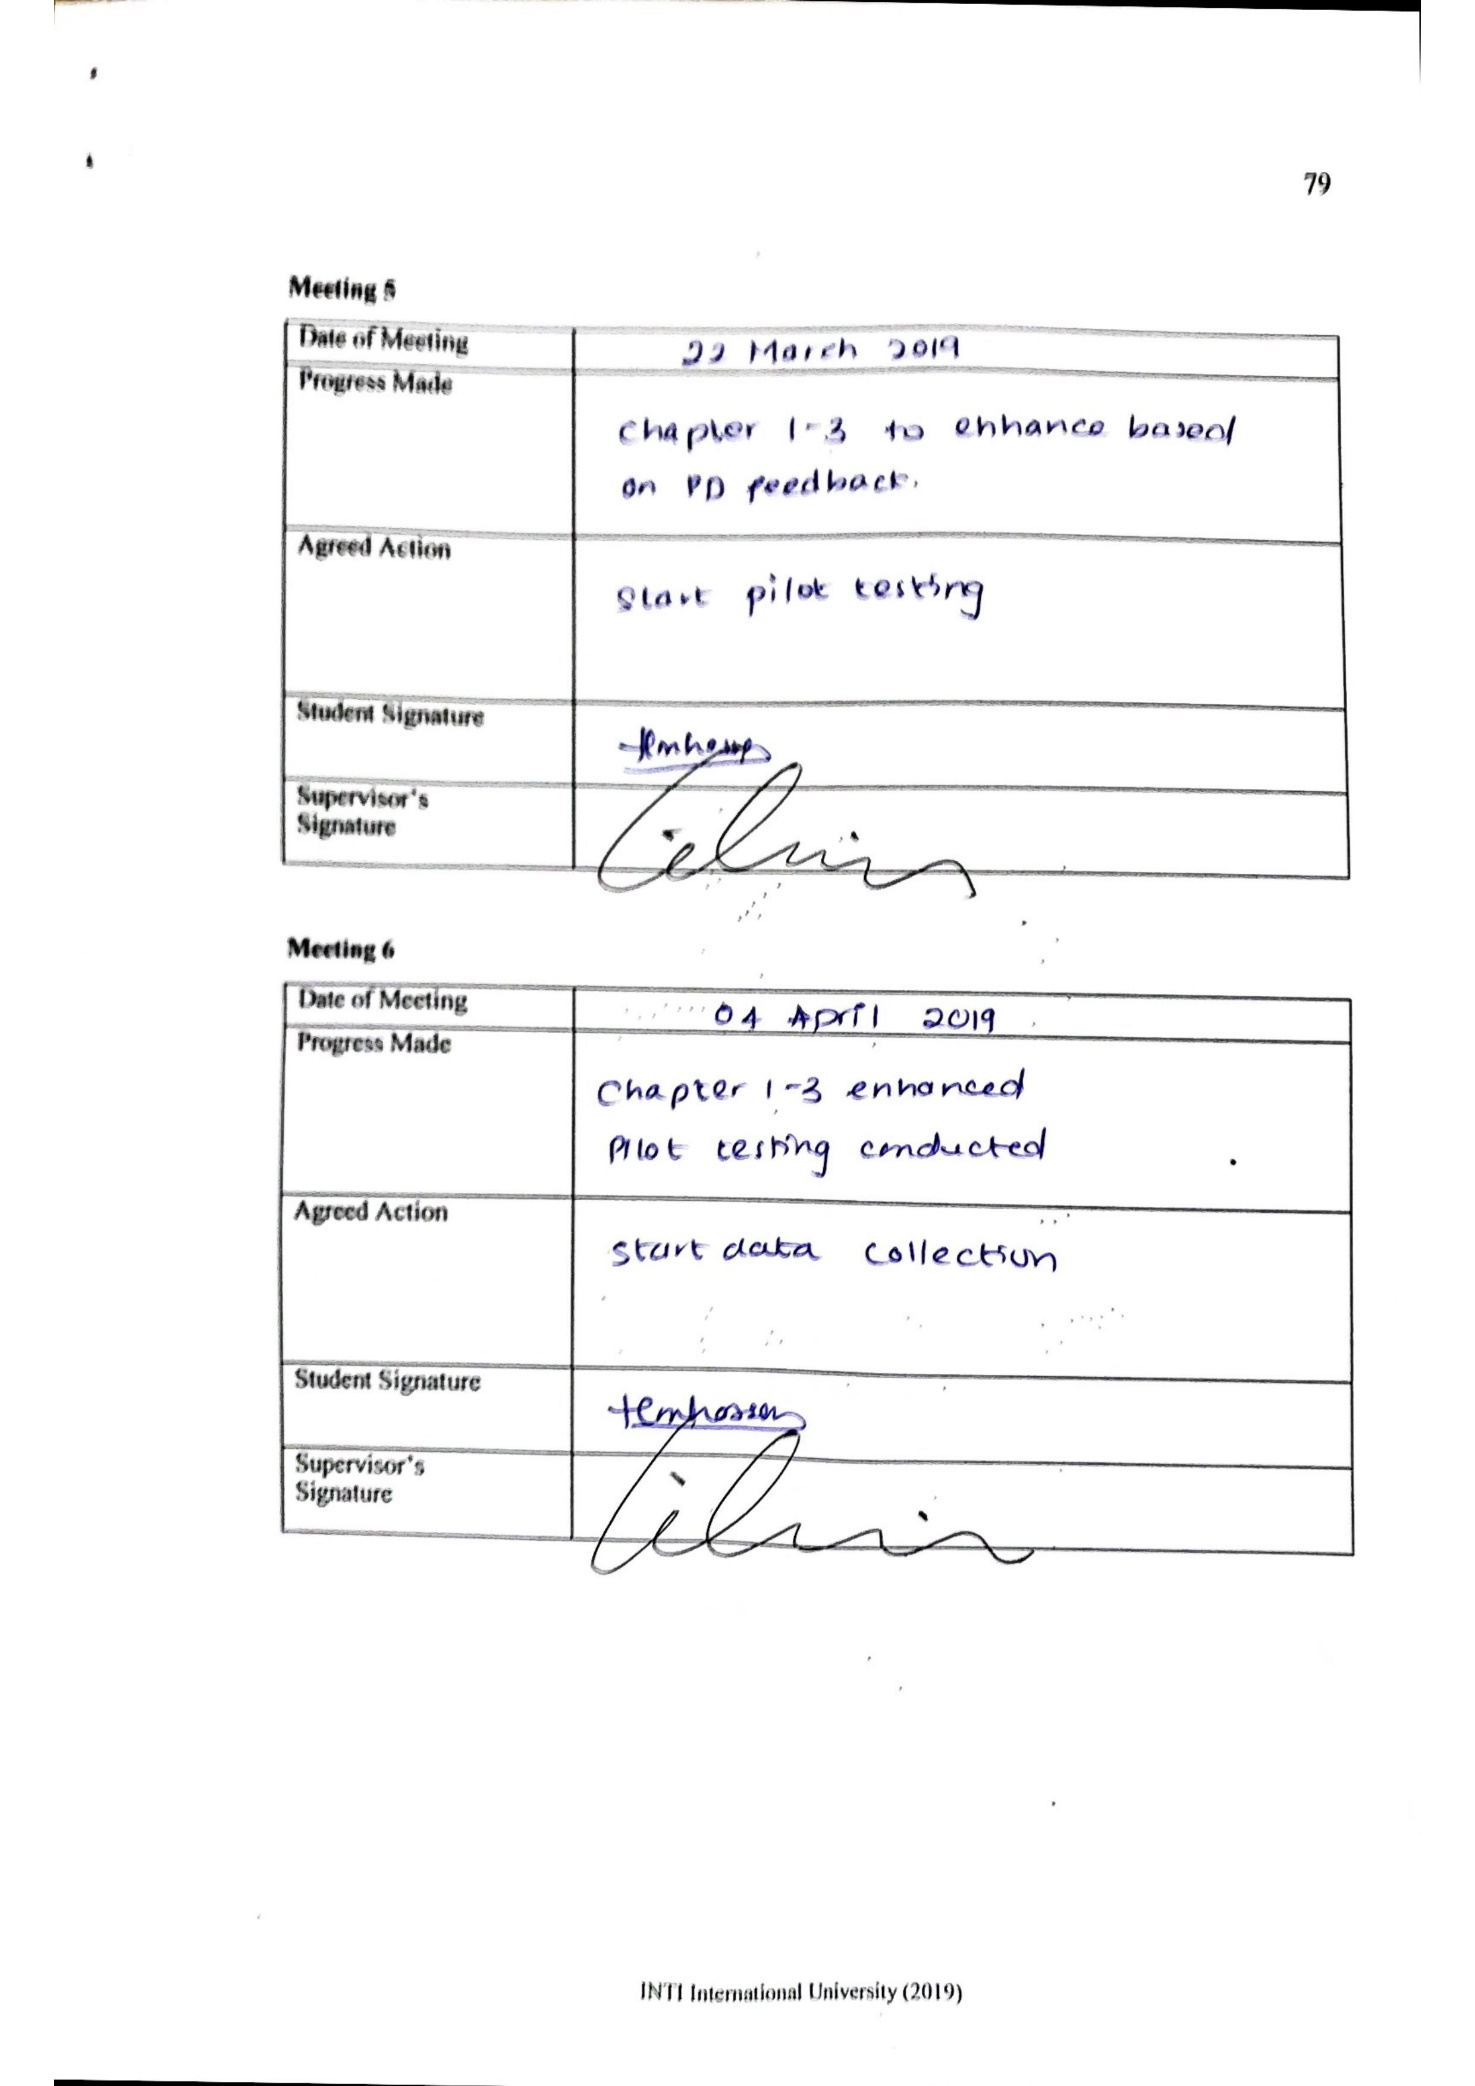 79
Meeting 5
Date of Meeting
22 March 2019
Progress Made
Chapter 1-3 to enhance based
on PD feedback.
Agreed Action
Start pilot testing
Student Signature
Supervisor's
Signature
Meeting 6
Date of Meeting
04 April 2019
Progress Made
Chapter 1-3 enhanced
Pilot testing conducted
Agreed Action
start data collection
Student Signature
Supervisor's
Signature
INTI International University (2019)